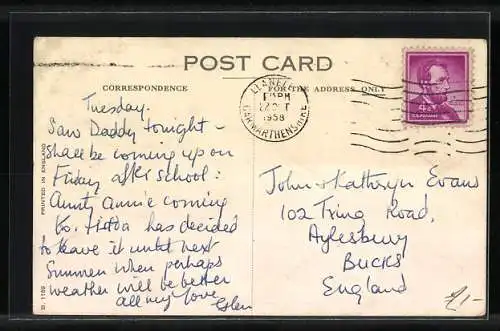 POST CARD
CORRESPONDENCE
FOR THE ADDRESS ONLY
LLANELLY
22 OCT
1958
CARMARTHENSHIRE
4¢
U.S. POSTAGE
Tuesday.
Saw Daddy tonight -
shall be coming up on
Friday after school:
Aunty Annie coming
to. has decided
to leave it until next
Summer when perhaps
weather will be better
all my love
John & Kathryn Evans
102 Tring Road,
Aylesbury
BUCKS
England
£1-
PRINTED IN ENGLAND